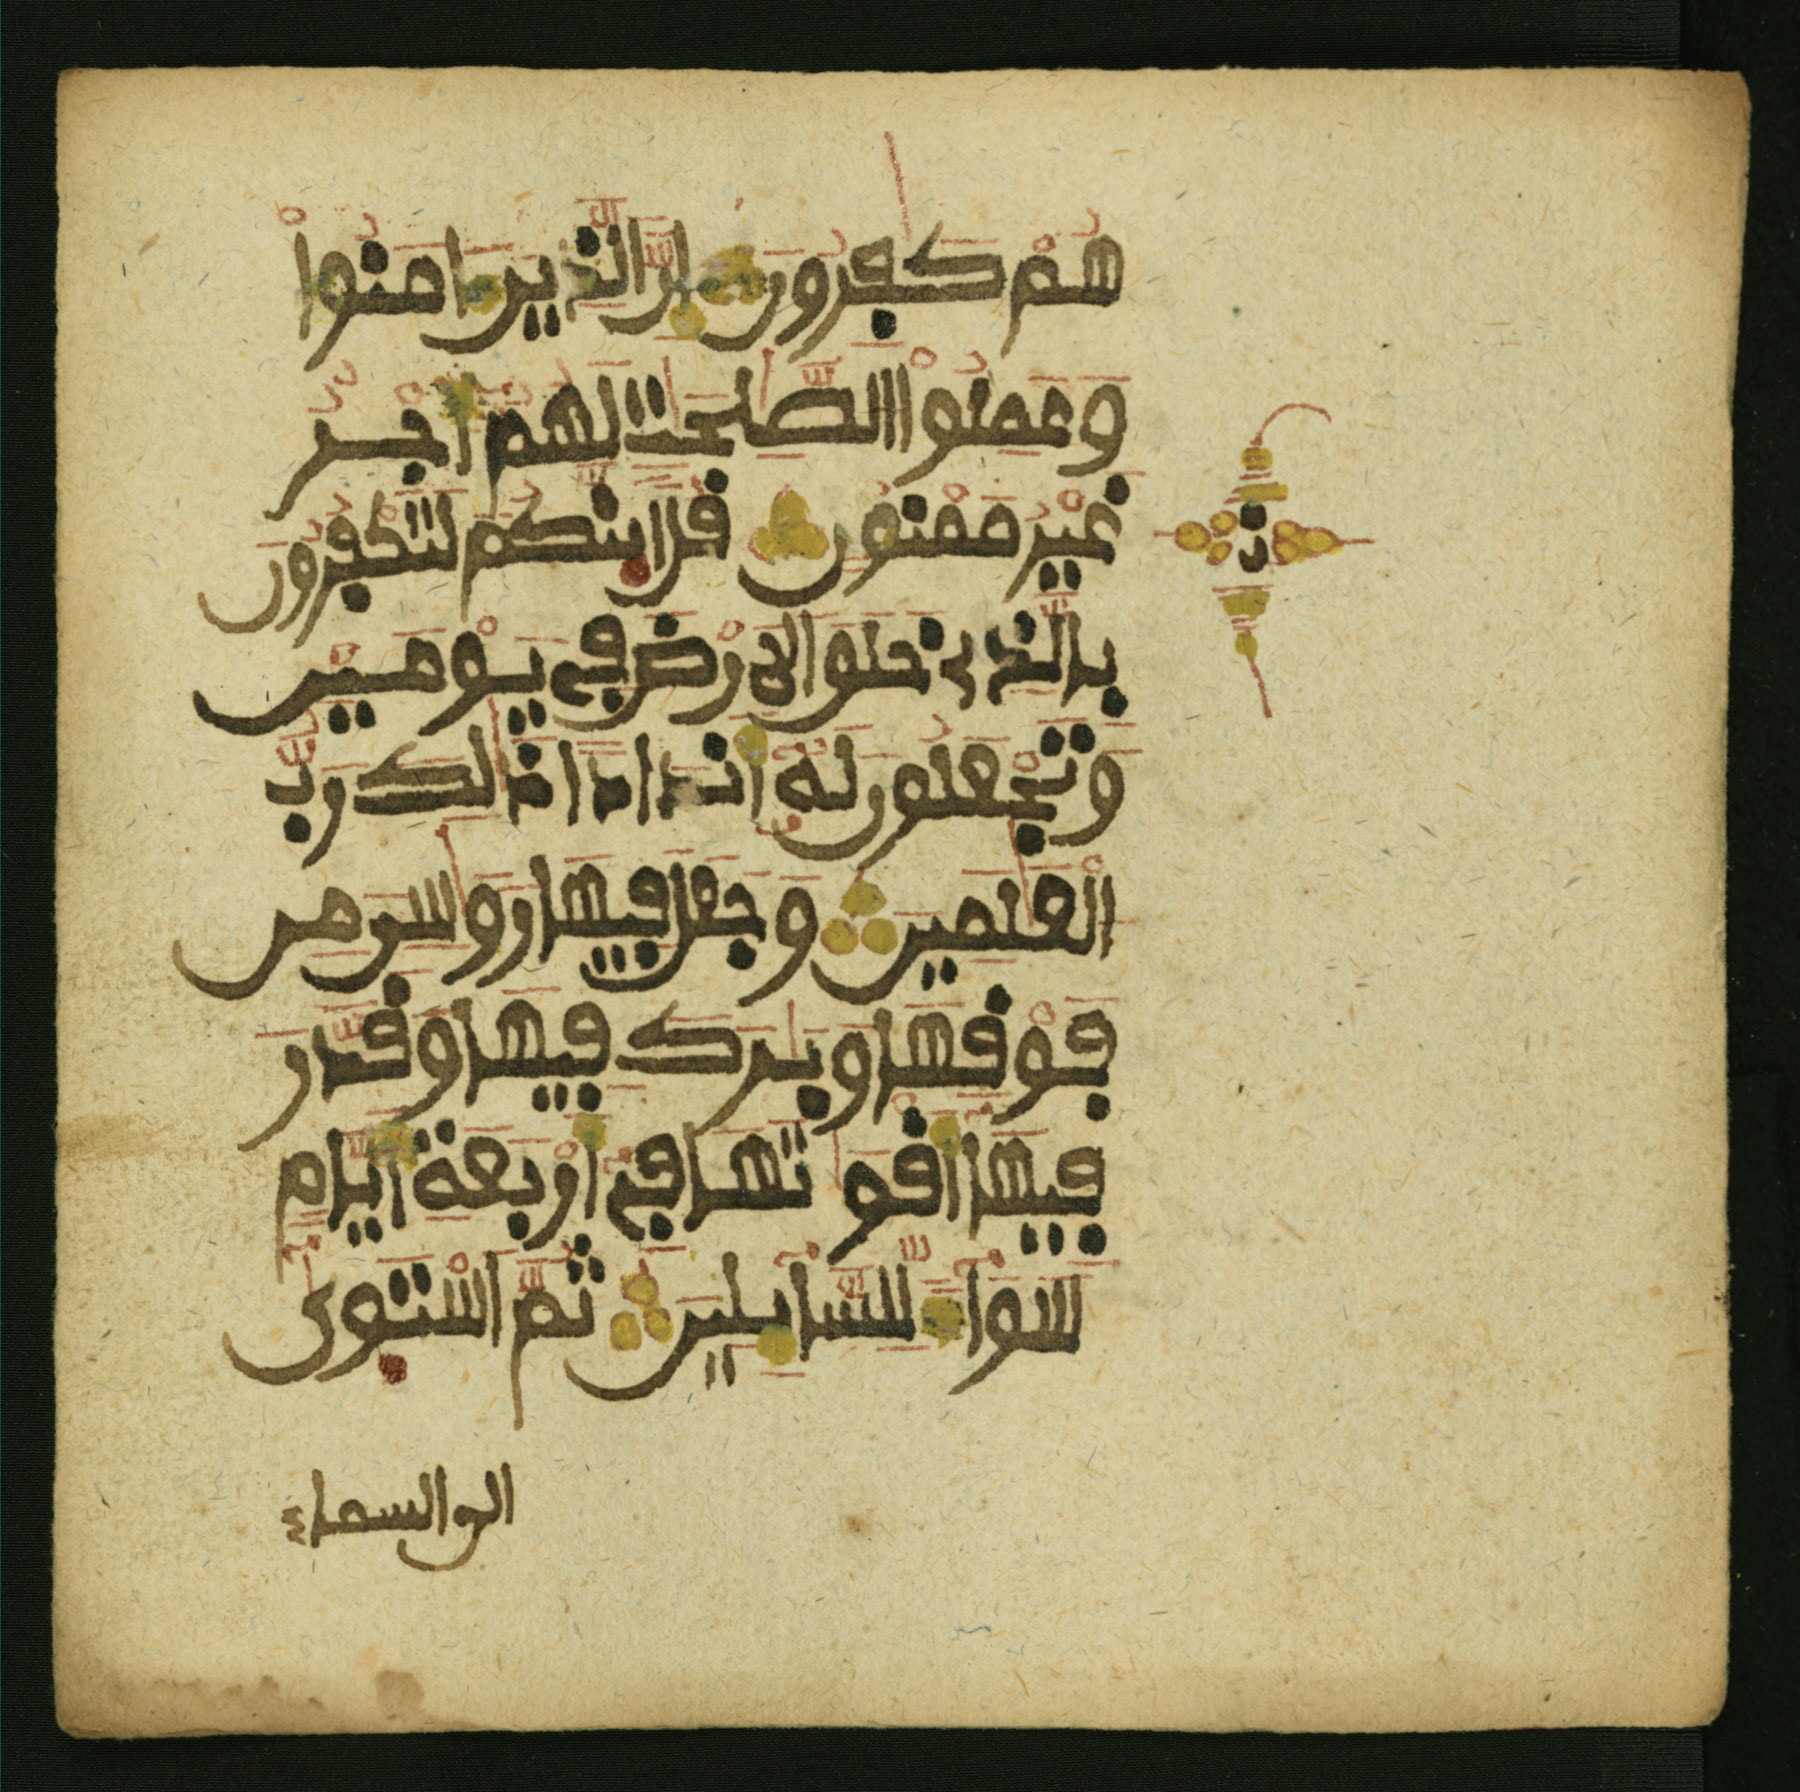 هُمْ كَٰفِرُونَ إِنَّ الَّذِينَ ءَامَنُواْ
وَعَمِلُواْ الصَّٰلِحَٰتِ لَهُمُۥ أَجْرٌ
غَيْرُ مَمْنُونٍ قُلَ اَينَّكُمْ لَتَكْفُرُونَ
بِالَّذِى خَلَقَ الَارْضَ فِى يَوْمَيْنِ
وَتَجْعَلُونَ لَهُۥ أَندَادًا ذَٰلِكَ رَبُّ
الْعَٰلَمِينَ وَجَعَلَ فِيهَا رَوَٰسِىَ مِن
فَوْقِهَا وَبَٰرَكَ فِيهَا وَقَدَّرَ
فِيهَا أَقْوَٰتَهَا فِى أَرْبَعَةِ أَيَّامٍ
سَوَآءً لِّلسَّآيِلِينَ ثُمَّ اسْتَوَىٰ
الى السماء